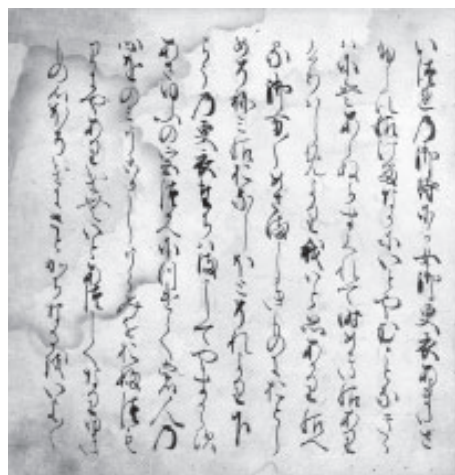 いつれの御時にか女御更衣あまたさ
ふらひ給けるなかにいとやむことなきき
はにはあらぬかすくれて時めき給あり
けりはしめより我はと思あかり給へ
る御方〱めさましきものにおとし
めそねみ給おなしほとそれより下
らうの更衣たちはましてやすからす
あさゆふの宮つかへにつけても人の
心をのみうこかしうらみをおふつも
りにやありけむいとあつしくなりゆき
もの心ほそけにさとかちなるをいよ〱